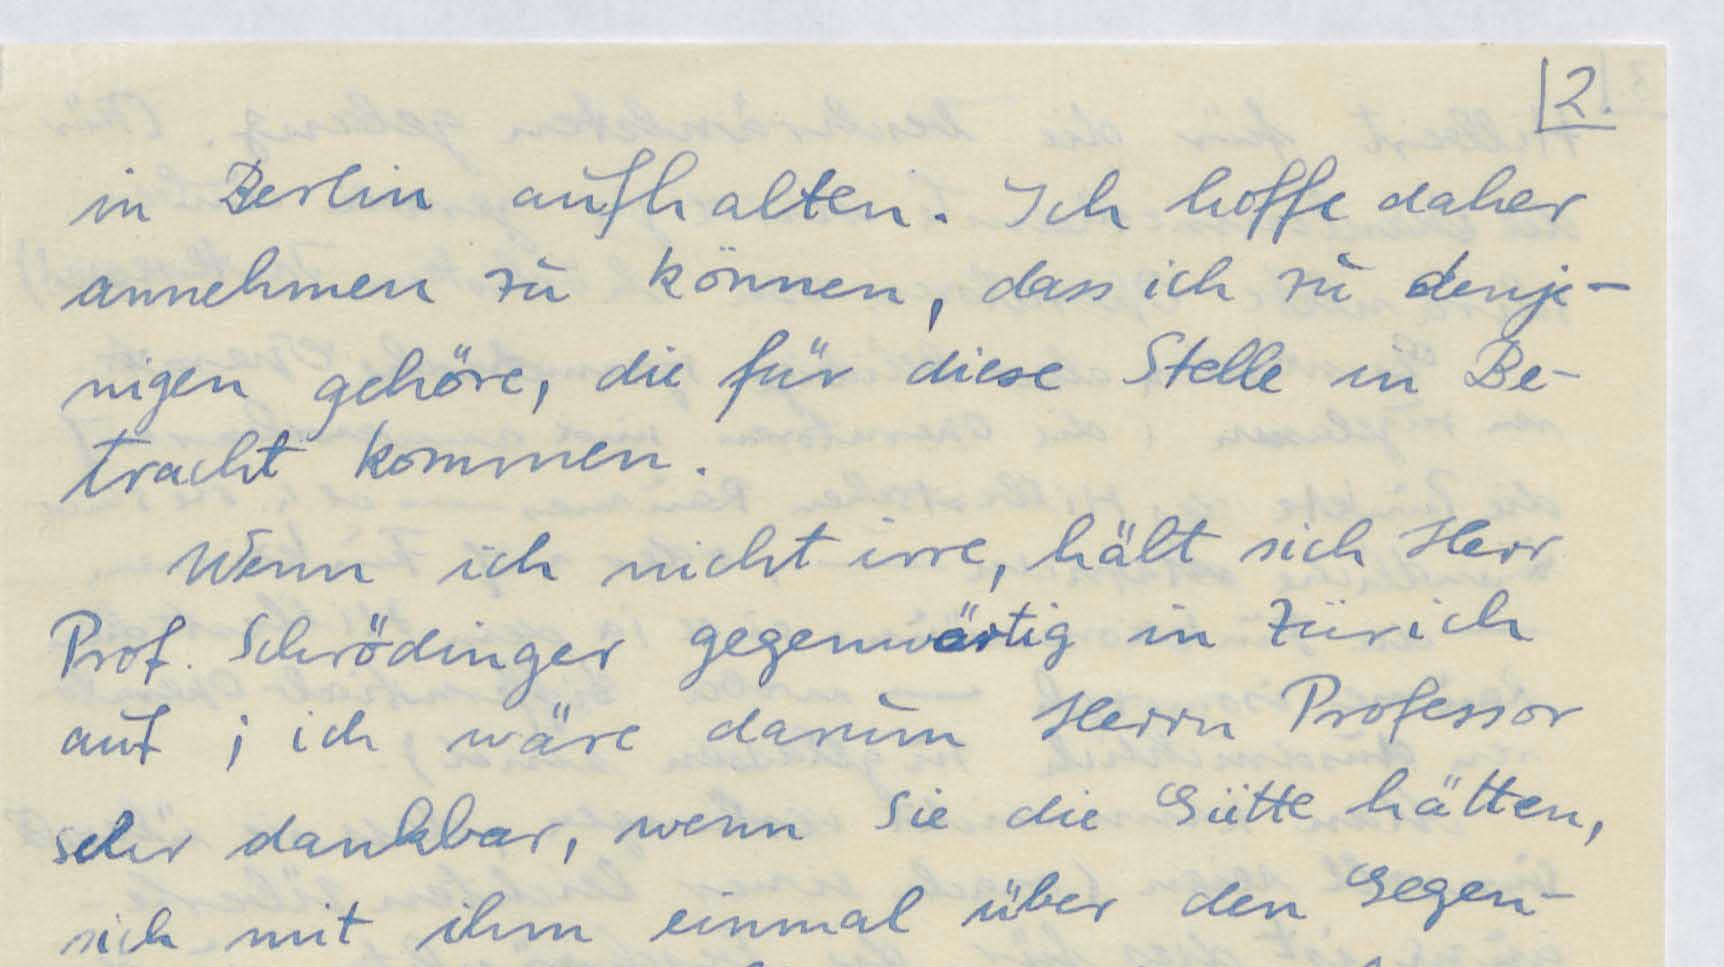 2.
in Berlin aufhalten. Ich hoffe daher
annehmen zu können, dass ich zu denje-
nigen gehöre, die für diese Stelle in Be-
tracht kommen.
Wenn ich nicht irre, hält sich Herr
Prof. Schrödinger gegenwärtig in Zürich
auf; ich wäre darum Herrn Professor
sehr dankbar, wenn Sie die Gütte hätten,
sich mit ihm einmal über den Gegen-